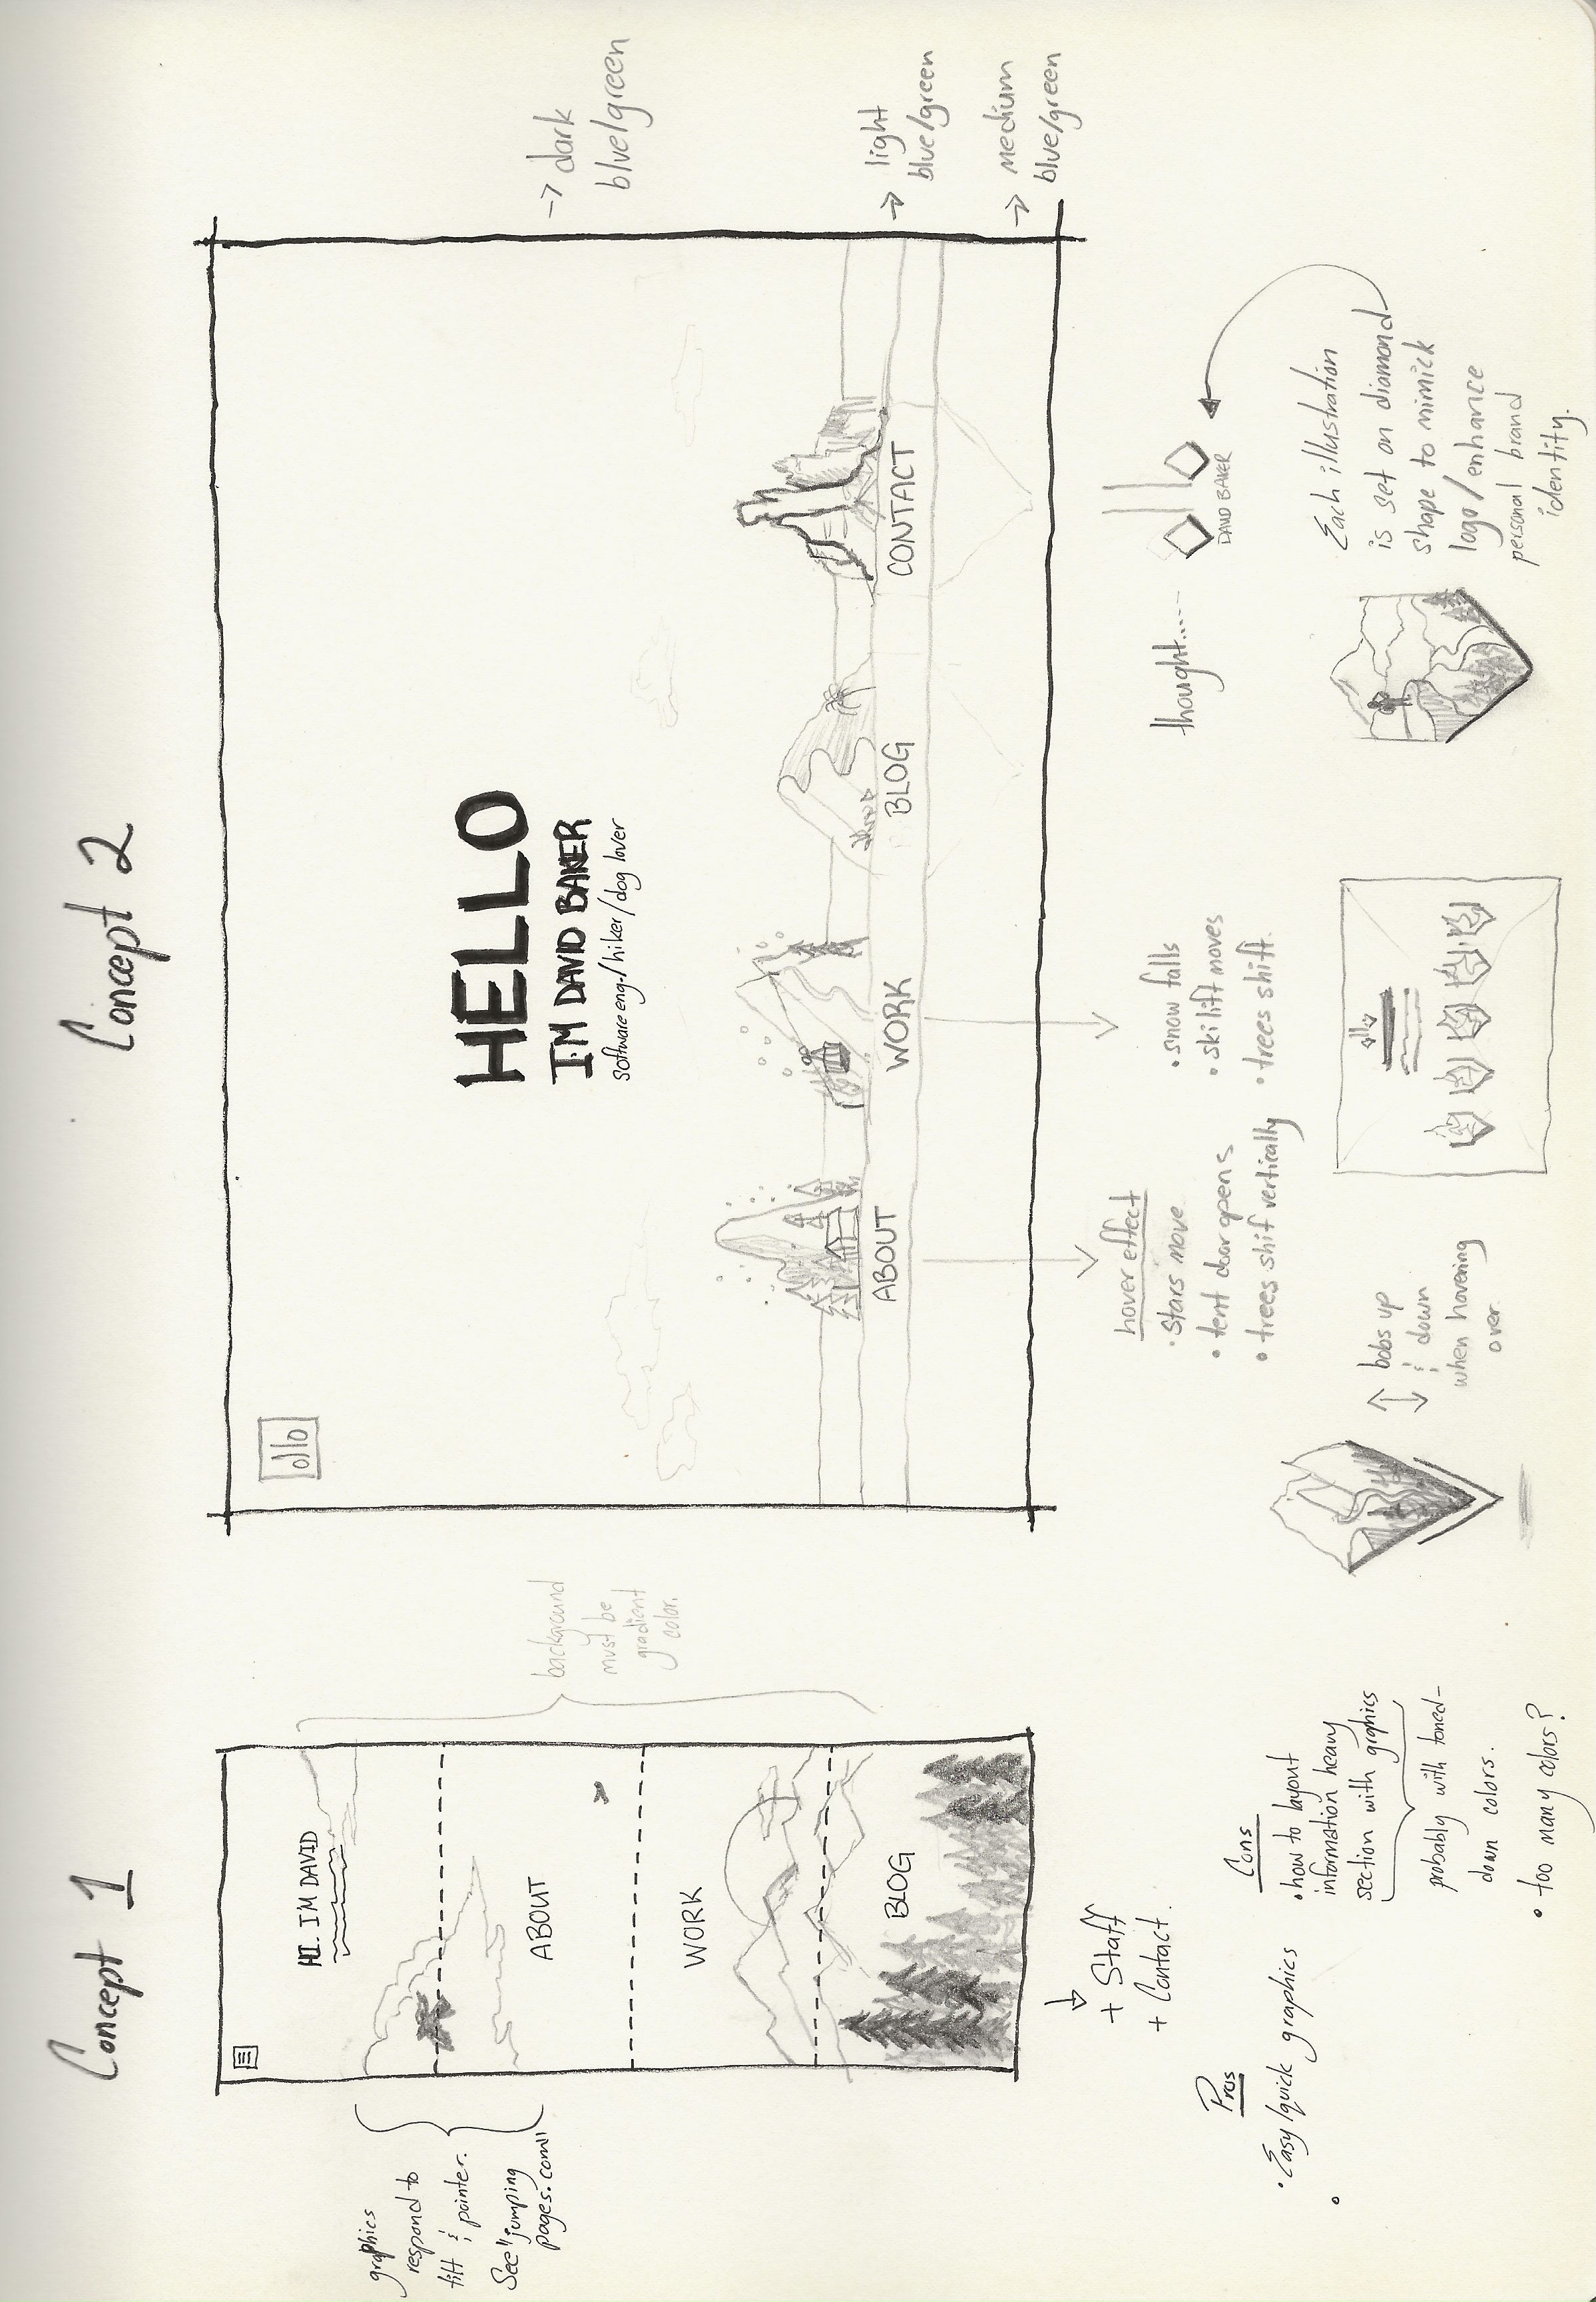 Concept 1
HI. I'M DAVID
graphics
respond to
tilt & pointer.
See "jumping
pages.com"
ABOUT
background
must be
gradient
color.
WORK
BLOG
+ Staff
+ Contact.
Pros
• Easy/quick graphics
•
Cons
• how to layout
information heavy
section with grphics
probably with toned-
down colors.
• too many colors?
Concept 2
ollo
HELLO
I'M DAVID BAKER
software eng./hiker/dog lover
ABOUT
WORK
BLOG
CONTACT
→ dark
blue/green
→ light
blue/green
→ medium
blue/green
hover effect
• stars move
• tent door opens
• trees shif vertically
• snow falls
• ski lift moves
• trees shift.
thought.....
DAVID BAKER
bobs up
& down
when hovering
over.
Each illustration
is set on diamond
shape to mimick
logo/enhance
personal brand
identity.